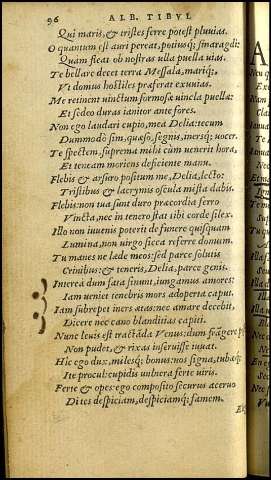 96 ALB. TIBVL
Qui maris, & tristes ferre potest pluuias.
O quantum est auri pereat, potiusq; smaragdi:
Quam fleat ob nostras ulla puella uias.
Te bellare decet terra Messala, mariq;,
Vt domus hostiles præferat exuuias.
Me retinent uinctum formosæ uincla puellæ:
Et sedeo duras ianitor ante fores.
Non ego laudari cupio, mea Delia: tecum
Dummodo sim, quæso, segnis, inersq; uocer.
Te spectem, suprema mihi cùm uenerit hora,
Et teneam moriens deficiente manu.
Flebis & arsuro positum me, Delia, lecto:
Tristibus & lacrymis oscula mista dabis.
Flebis: non tua sunt duro præcordia ferro
Vincta, nec in tenero stat tibi corde silex.
Illo non iuuenis poterit de funere quisquam
Lumina, non uirgo sicca referre domum.
Tu manes ne læde meos: sed parce solutis
Crinibus: & teneris, Delia, parce genis.
Interea dum fata sinunt, iungamus amores:
Iam ueniet tenebris mors adoperta caput.
Iam subrepet iners ætas: nec amare decebit,
Dicere nec cano blanditias capiti.
Nunc leuis est tractāda Venus: dum frāgere
Non pudet, & rixas inseruisse iuuat.
Hic ego dux, milesq; bonus: uos signa, tubæq;
Ite procul: cupidis uulnera ferte uiris.
Ferte & opes: ego composito securus aceruo
Dites despiciam, despiciamq; famem.